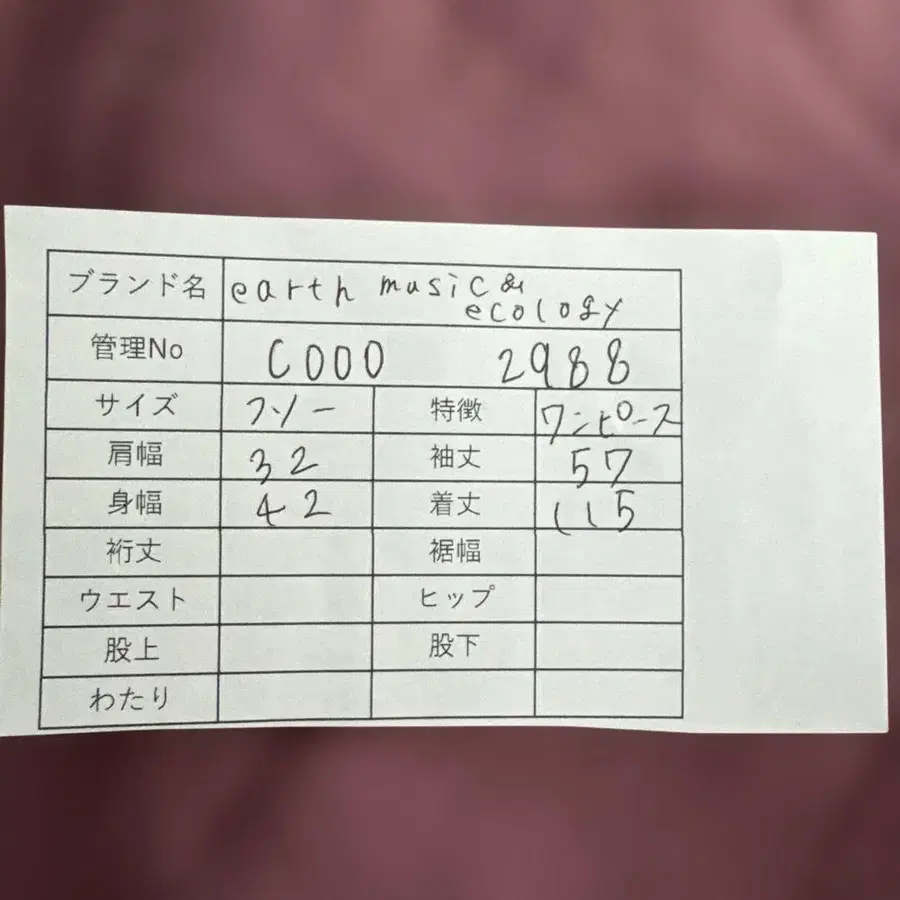 ブランド名 earth music &
ecology
管理No C000 2988
サイズ フリー 特徴 ワンピース
肩幅 32 袖丈 57
身幅 42 着丈 115
裄丈 裾幅
ウエスト ヒップ
股上 股下
わたり